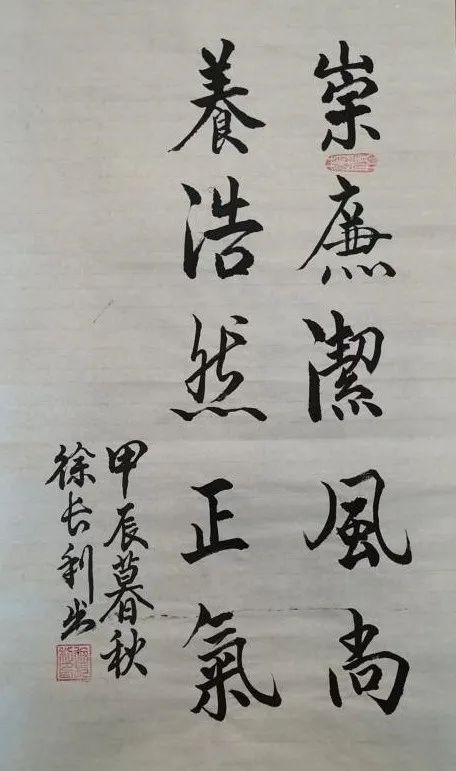 崇廉潔風尚
養浩然正氣
甲辰暮秋
徐长利书